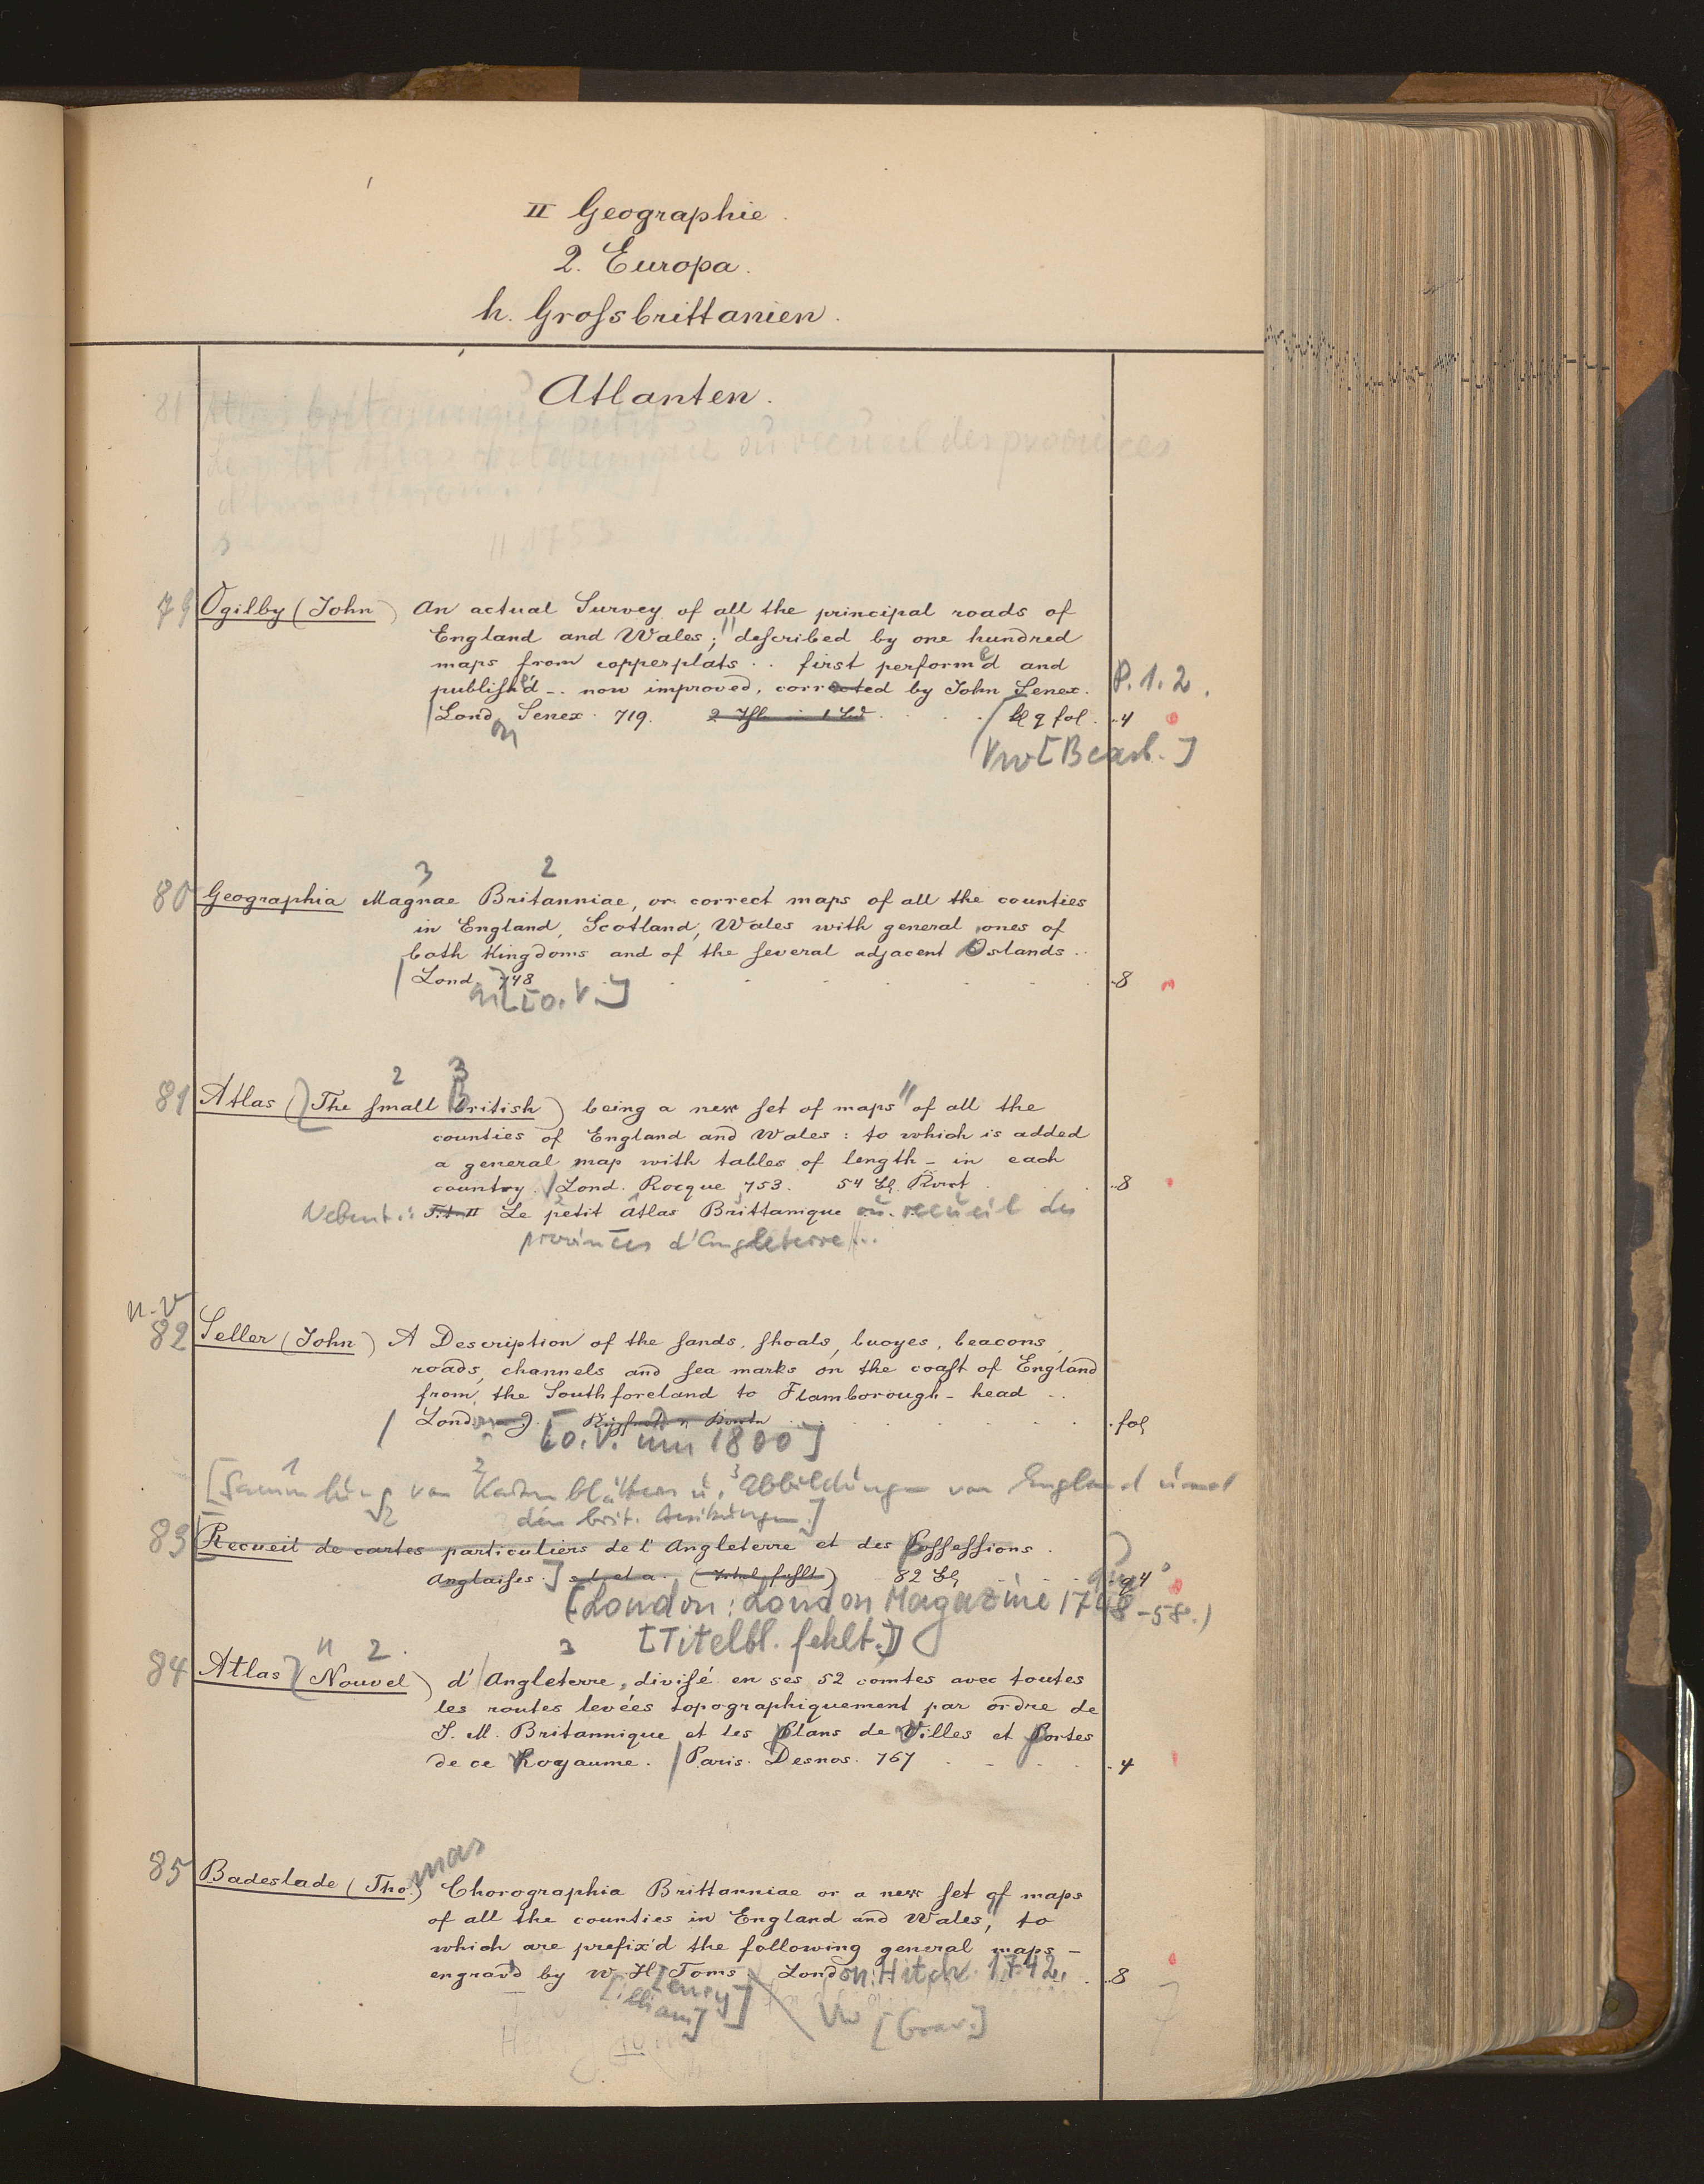 II Geographie.
2. Europa.
h. Groſsbrittanien.
Atlanten.
81
Le petit Atlas britannique ou recueil des provinces
1753
79 Ogilby (John) An actual Survey of all the principal roads of
England and Wales; deſcribed by one hundred
maps from copperplats .. firſt perform'd and
publiſh'd -. now improved, corrected by John Senex. P. 1. 2.
London Senex. 719. kl q fol. 4
Vw [Bearb.]
3 2
80 Geographia Magnae Britanniae, or correct maps of all the counties
in England, Scotland, Wales with general ones of
both Kingdoms and of the ſeveral adjacent Islands ..
Lond. 748 8
[o. V.]
2 3
81 Atlas (The ſmall British) being a new ſet of maps of all the
counties of England and Wales: to which is added
a general map with tables of length - in each
country. Lond. Rocque 753. 54 Bl. 8
Nebent.: Tit II Le petit Atlas Brittanique ou recueil des
provinces d'Angleterre ...
n.v
82 Seller (John) A Description of the ſands, ſhoals, buoyes, beacons,
roads, channels and ſea marks on the coaſt of England
from the Southforeland to Flamborough-head ..
London fol
[o.V. um 1800]
1 2 3
[Sammlung von Kartenblättern u. Abbildungen von England und
den brit. Besitzungen.]
83 [Recueil de cartes particuliers de l'Angleterre et des Poſſeſſions
Anglaiſes.] s. l. et a. (Titel fehlt) 82 Bl q 4°
[London: London Magazine 1748-58.)
[Titelbl. fehlt.]
2 3
84 Atlas (Nouvel) d'Angleterre, diviſé en ses 52 comtes avec toutes
les routes levées topographiquement par ordre de
S. M. Britannique et les Plans de Villes et Portes
de ce Royaume. Paris. Desnos. 767 4
85 Badeslade (Thomas) Chorographia Brittanniae or a new ſet of maps
of all the counties in England and Wales, to
which are prefix'd the following general maps -
engrav'd by W. H. Toms London: Hitch. 1742. 8
[illiam] [enry] Vw [Grav.]